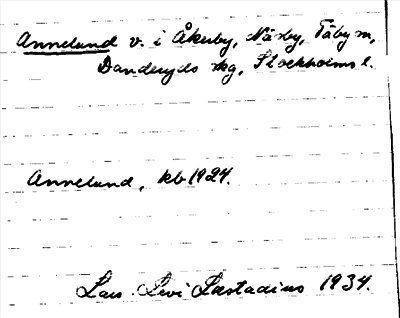 Annelund v. i Åkerby, Näsby, Täby sn,
Danderyds skg, Stockholms l.
Annelund, kb 1924.
Lars Levi Læstadius 1934.